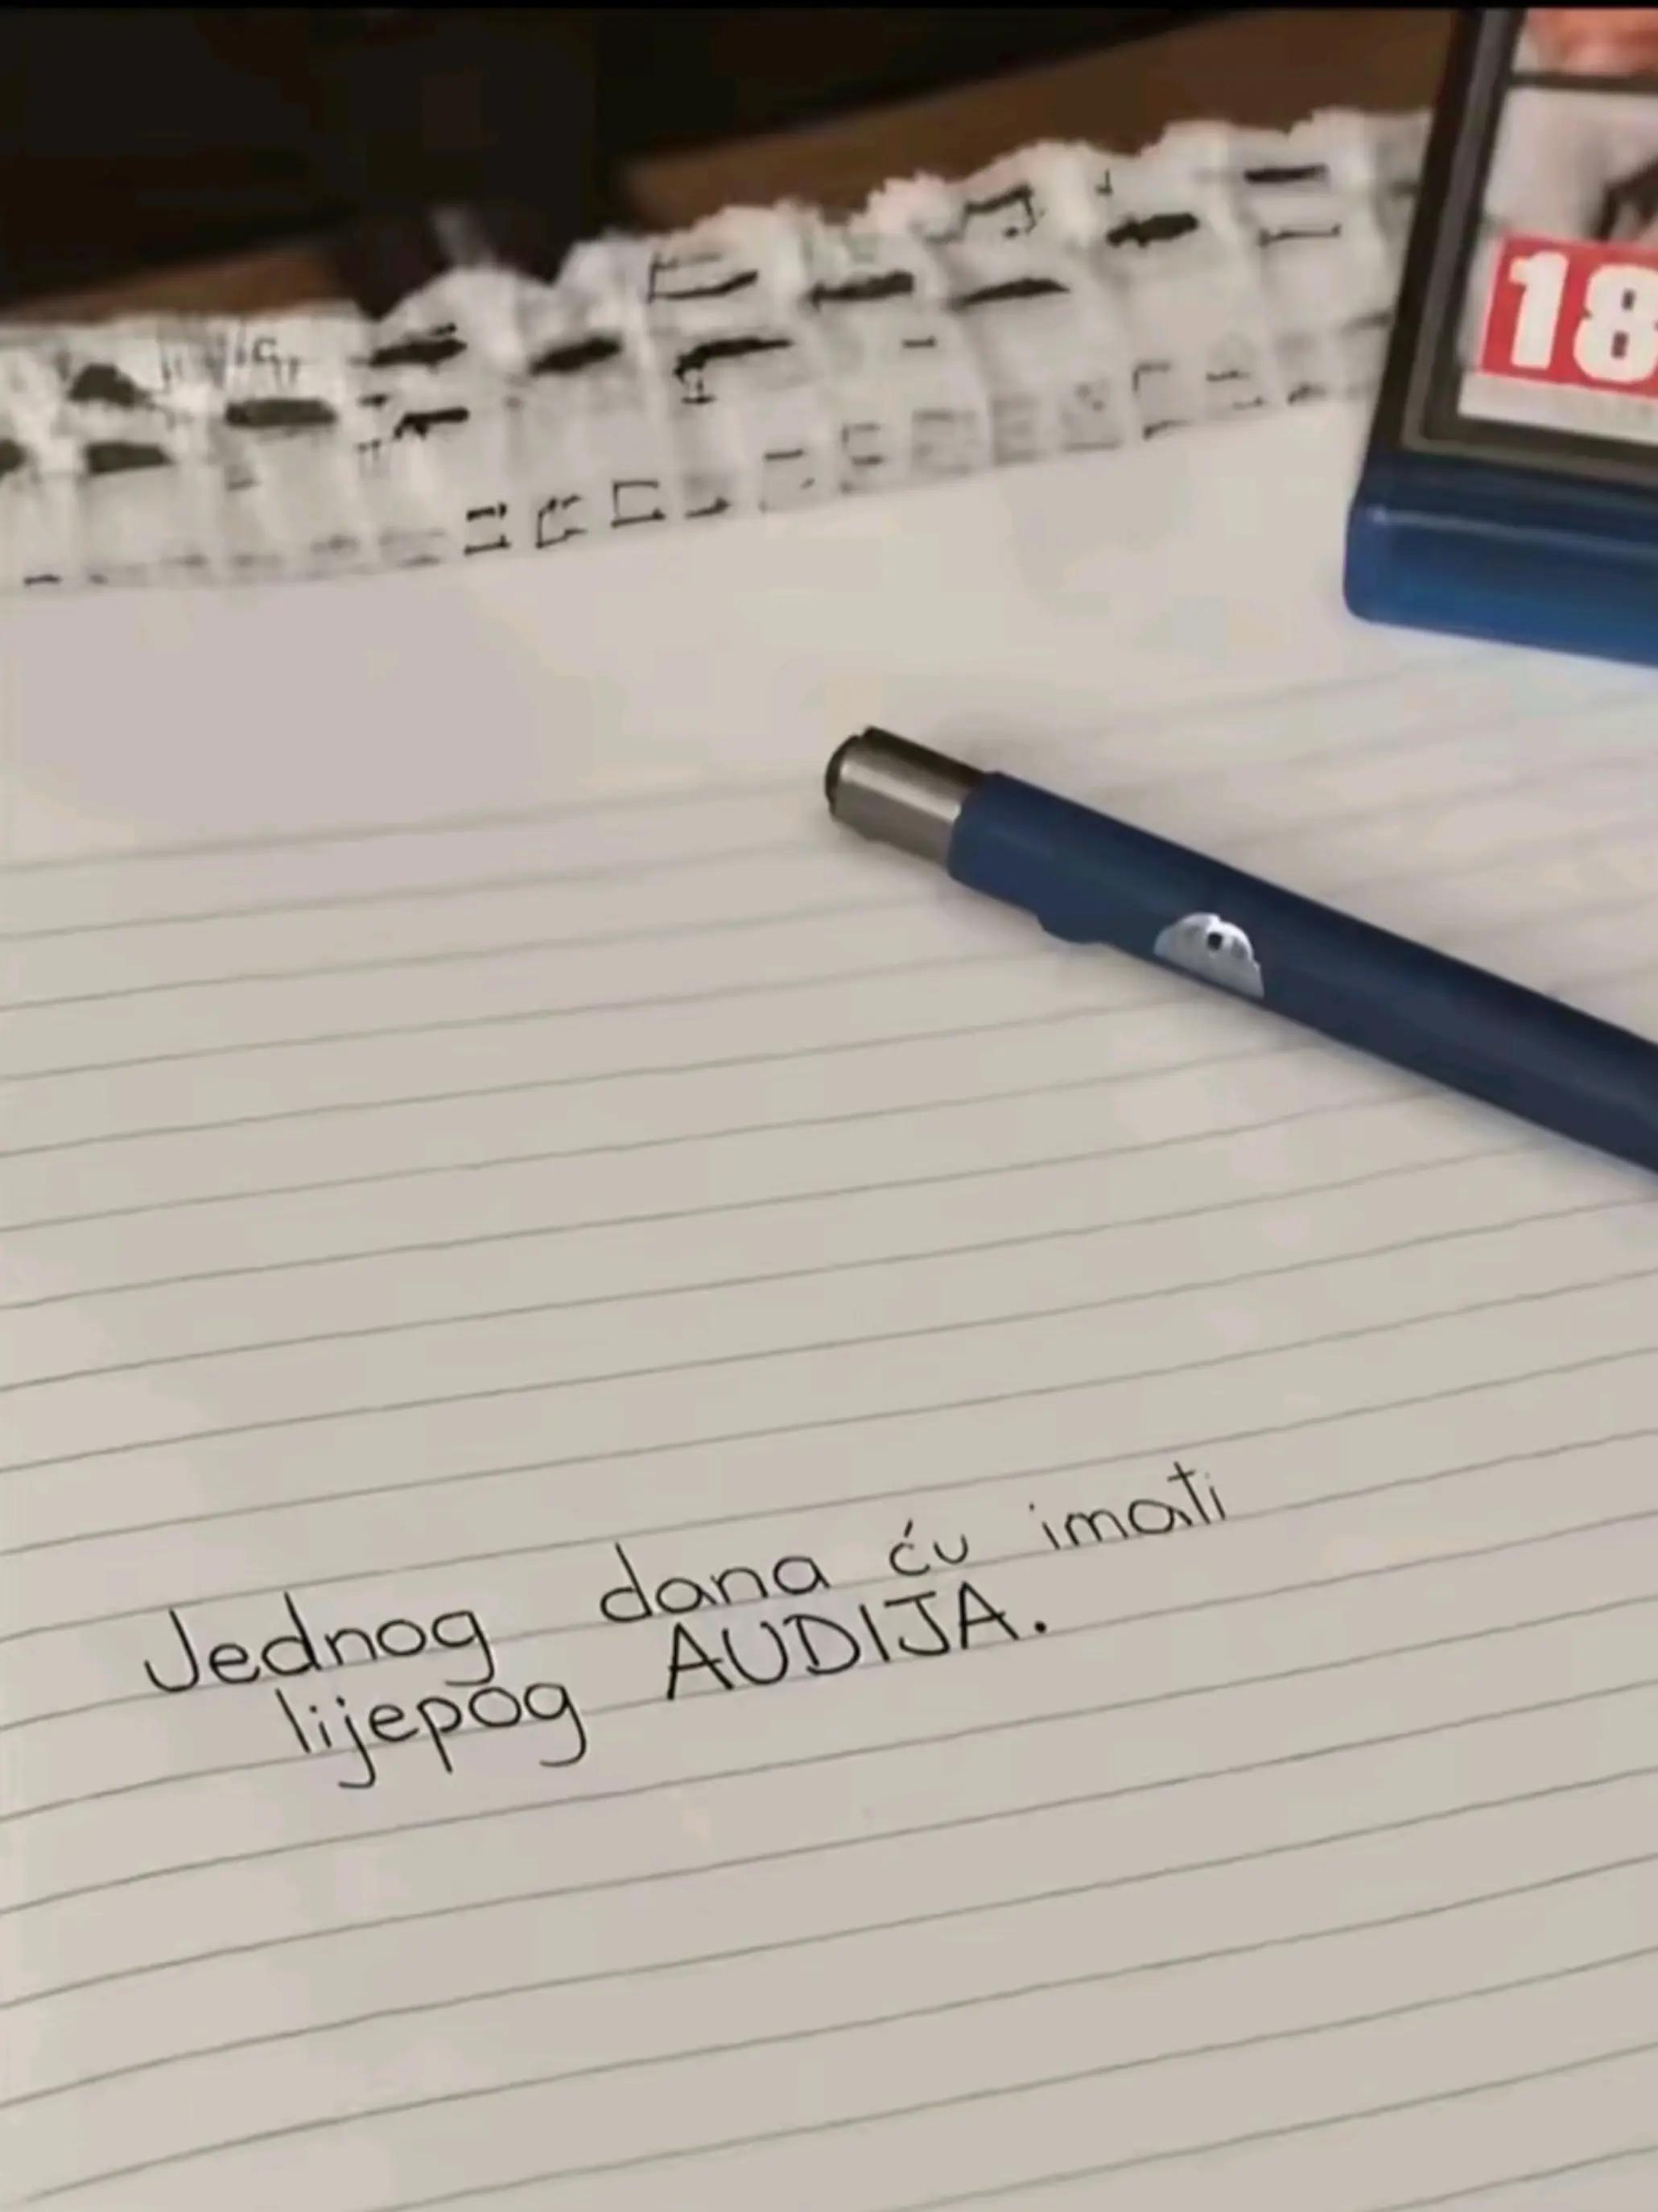 18
Jednog dana ću imati
lijepog AUDIJA.